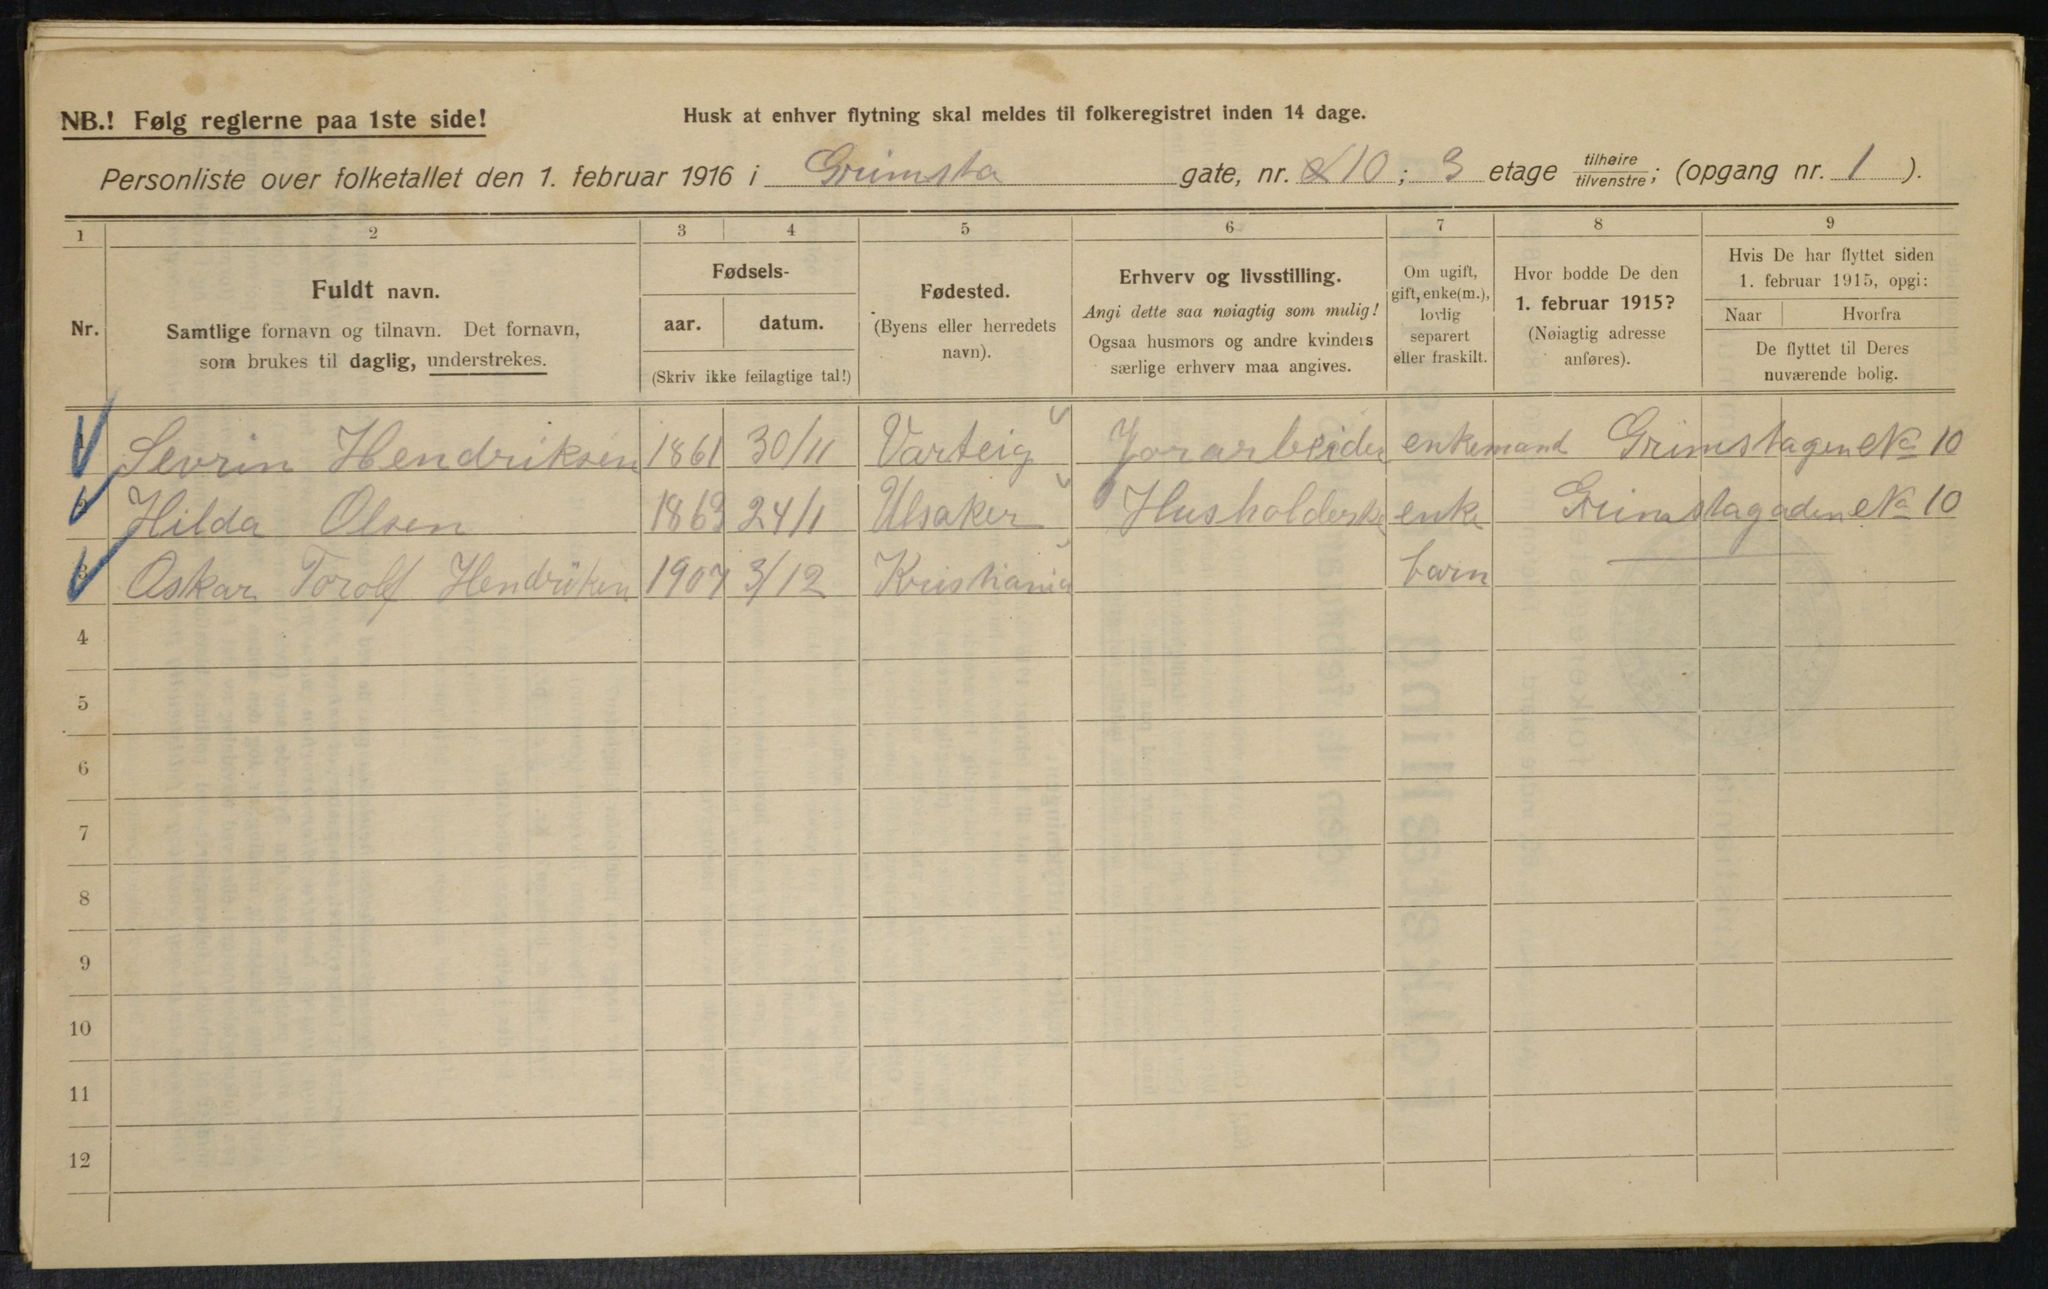 NB.! Følg reglerne paa 1ste side!
Husk at enhver flytning skal meldes til folkeregistret inden 14 dage.
Personliste over folketallet den 1. februar 1916 i Grimsta gate, nr. 10; 3 etage tilhøire/tilvenstre; (opgang nr. 1).
1 2 3 4 5 6 7 8 9
Nr.
Fuldt navn.
Samtlige fornavn og tilnavn. Det fornavn,
som brukes til daglig, understrekes.
Fødsels-
aar. datum.
(Skriv ikke feilagtige tal!)
Fødested.
(Byens eller herredets
navn).
Erhverv og livsstilling.
Angi dette saa nøiagtig som mulig!
Ogsaa husmors og andre kvinders
særlige erhverv maa angives.
Om ugift,
gift, enke(m.),
lovlig
separert
eller fraskilt.
Hvor bodde De den
1. februar 1915?
(Nøiagtig adresse
anføres).
Hvis De har flyttet siden
1. februar 1915, opgi:
Naar Hvorfra
De flyttet til Deres
nuværende bolig.
1 Sevrin Hendriksen 1861 30/11 Varteig Jorarbeider enkemand Grimstagen No 10
2 Hilda Olsen 1863 24/1 Ulsaker Husholderske enke Grimstagaden No 10
3 Oskar Torolf Hendriksen 1907 3/12 Kristiania barn
4
5
6
7
8
9
10
11
12